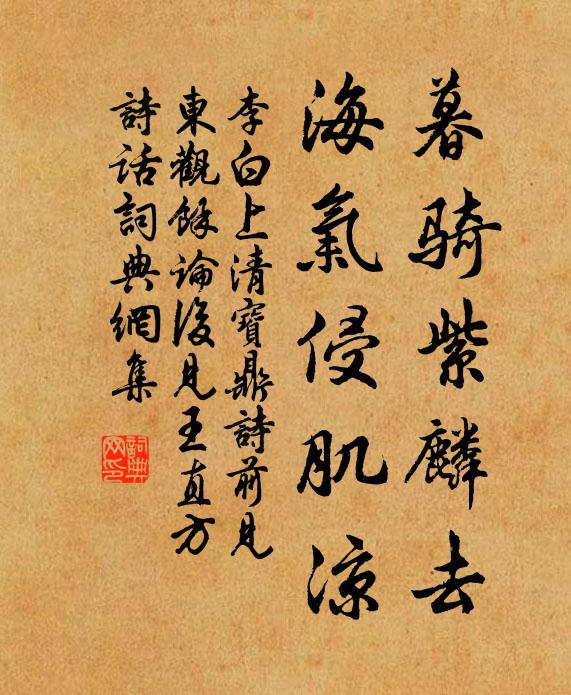 暮骑紫麟去
海氣侵肌涼
李白上清寶鼎詩前見
東觀餘論後見王直方
詩话詞典網集
詞典网印